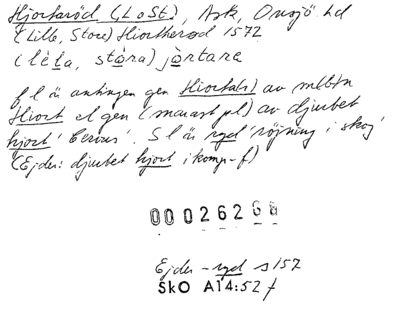 Hjortaröd (L o St.), Ask, Onsjö hd
(Lilla, Store) Hiortherød 1572
(lèla, stòra) jòrtare
f l är antingen gen Hiorta(r) av mbtn
Hiort el gen (march pl) av djurbet
hjort 'Cervus'. S l är ryd 'röjning i skog'
(Ejder: djurbet hjort i komp-f)
00026266
Ejder -ryd s 157
SkO A14:52 f